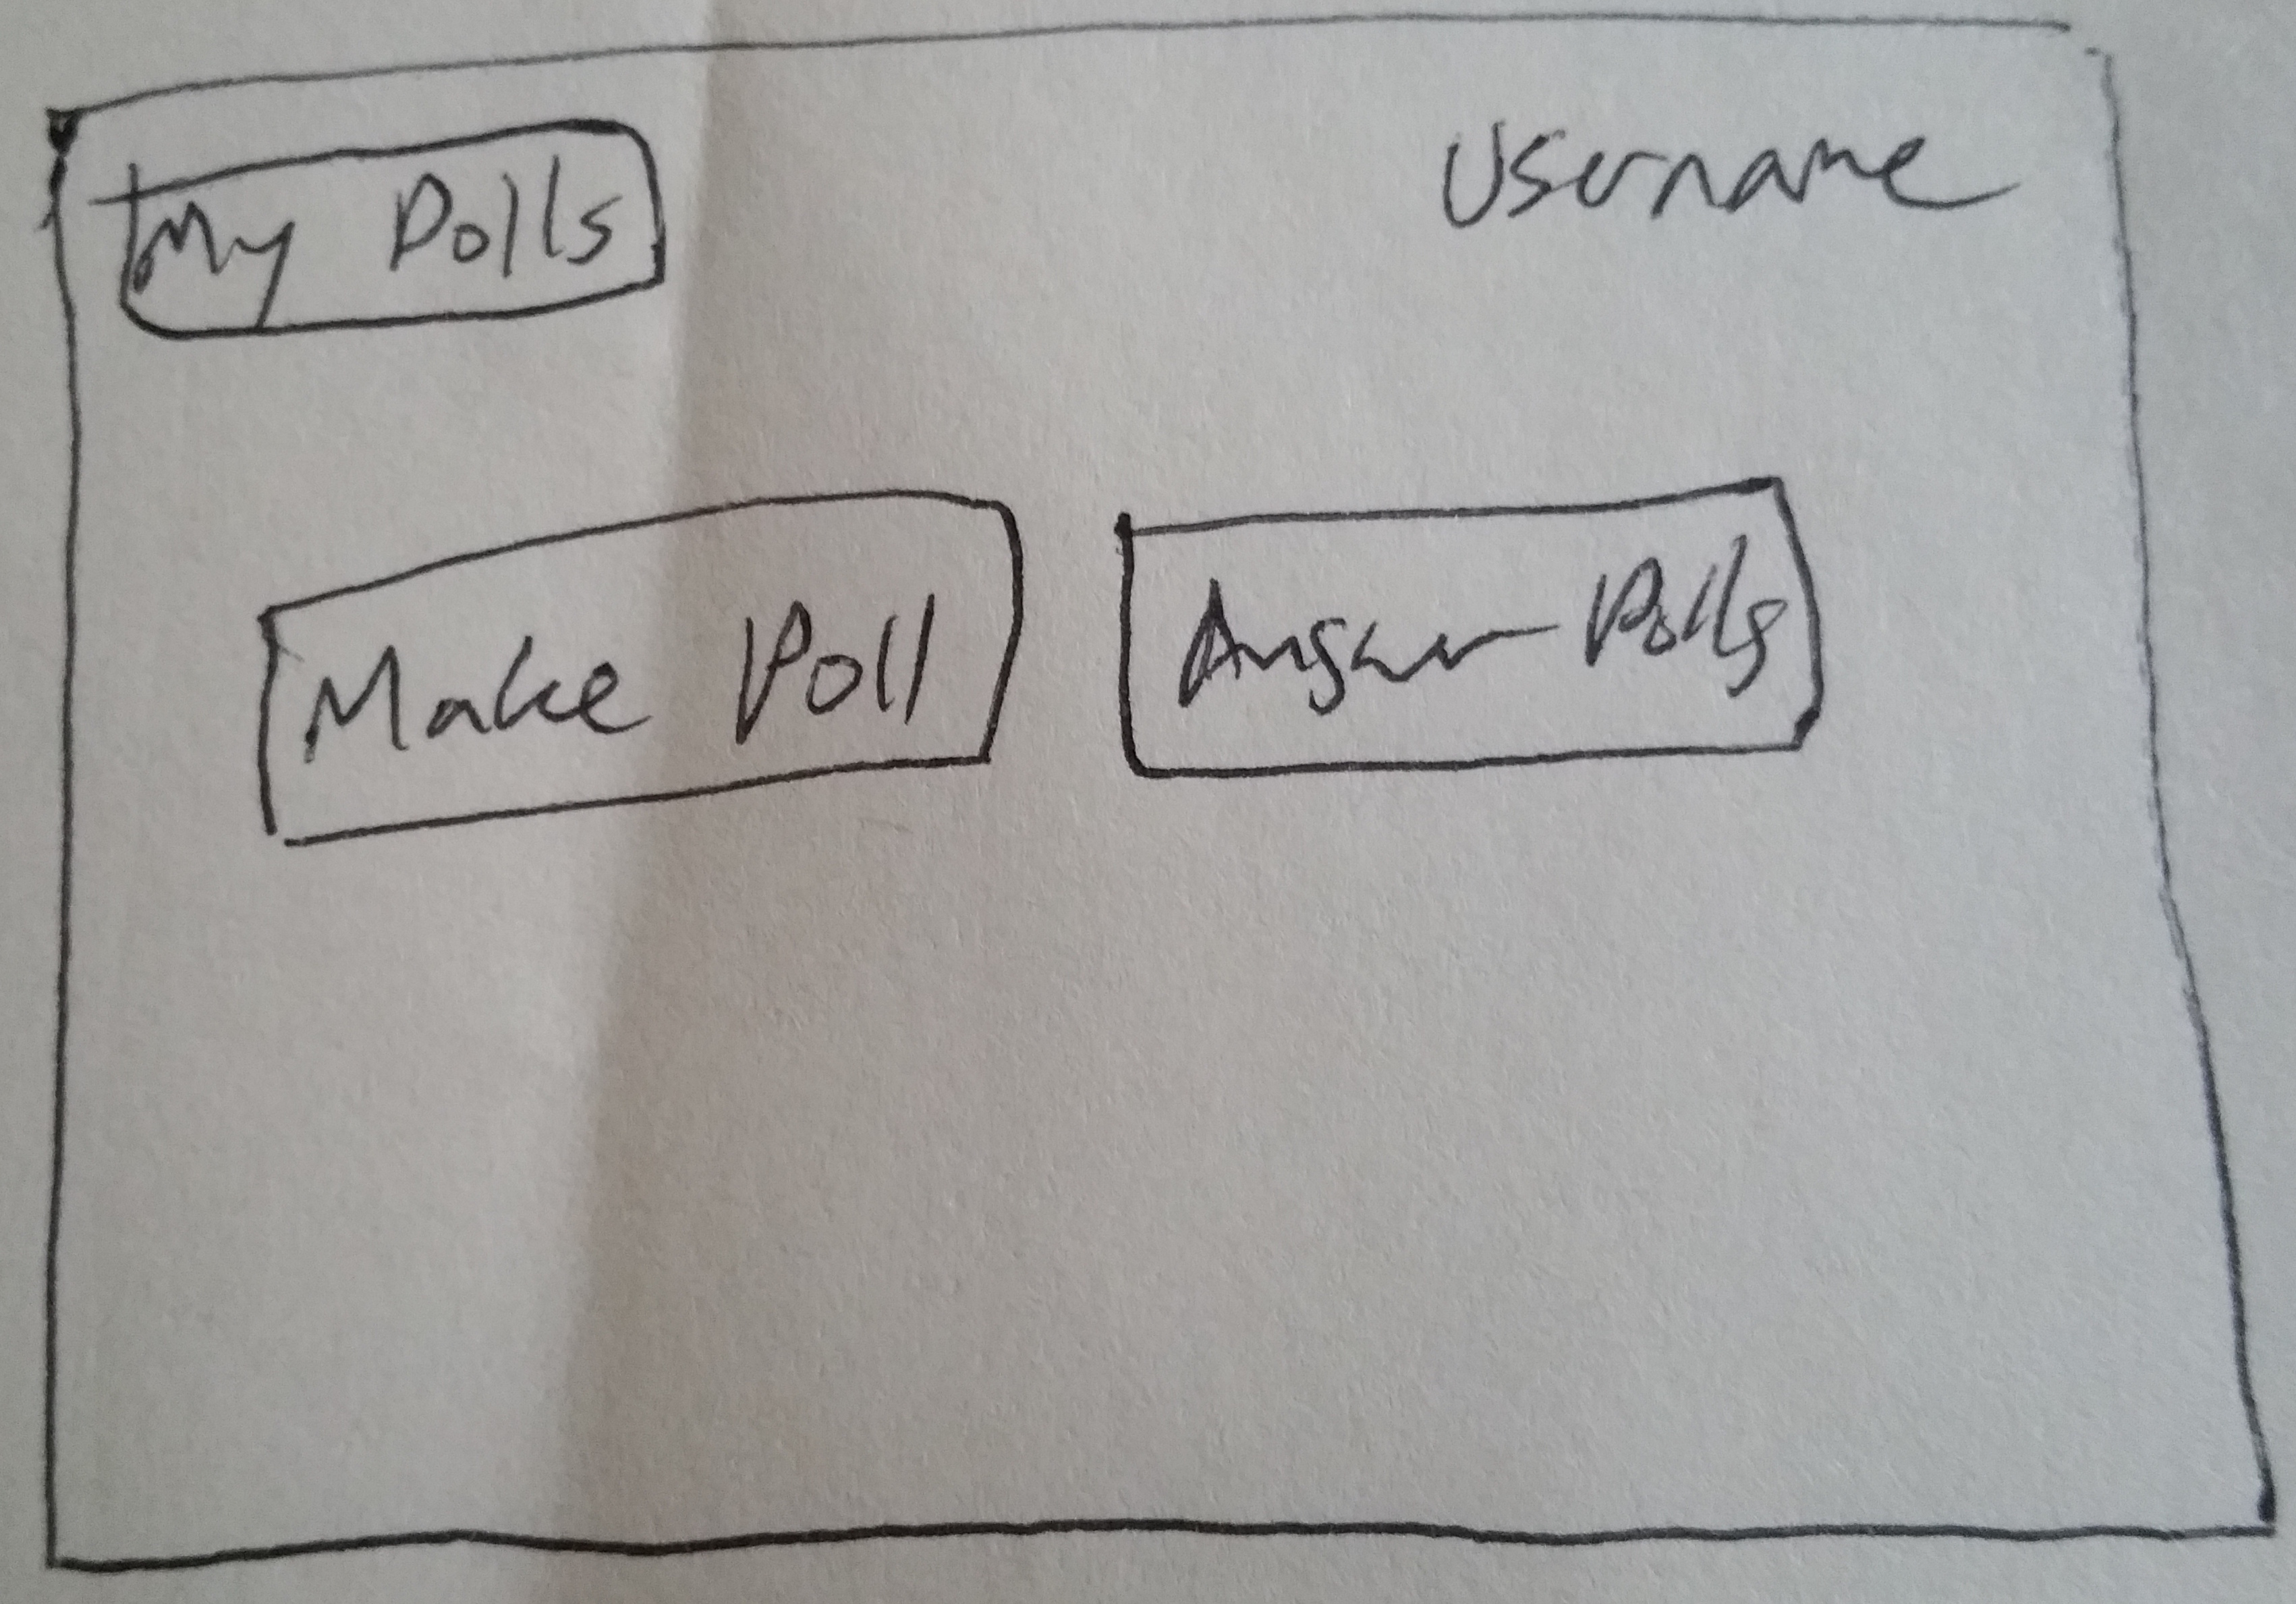 My Polls
Username
Make Poll
Answer Polls